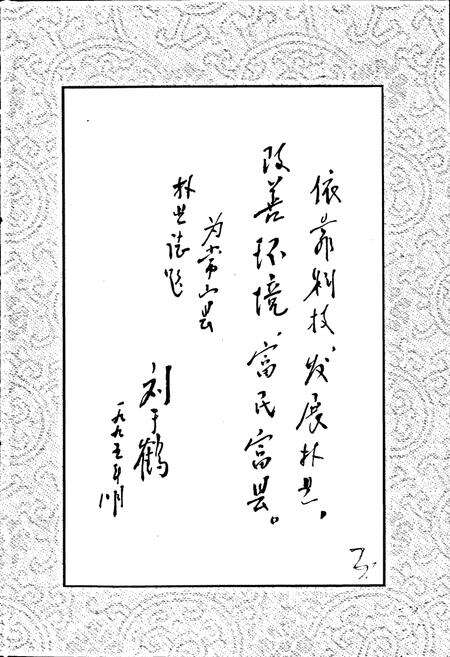 依靠科技、发展林业，
改善环境、富民富县。
为常山县
林业志题
刘于鹤
一九九五年八月